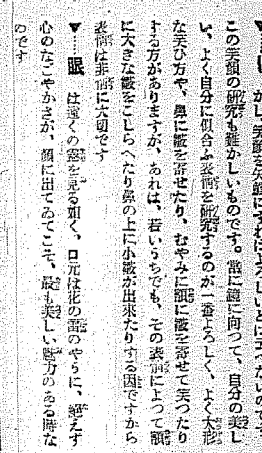 かし、笑顔を笑顔にすればよろしいとは立つないので
この笑顔の研究も難かしいものです。常に鏡に向つて、自分の美し
い、よく自分に似合ふ表情を研究するのが一番よろしく、よく大形
な笑ひ方や、鼻に皺を寄せたり、むやみに額に皺を寄せて笑つたり
する方がありますが、あれは、若いうちでも、その表情によつて額
に大きな皺をこしらへたり鼻の上に小皺が出來たりする因ですから
表情は非常に大切です
▼……眼 は遠くの を見る如く、口元は花の蕾のやうに、絶えず
心のなごやかさが、顔に出てゐてこそ、最も美しい魅力のある顔な
のです